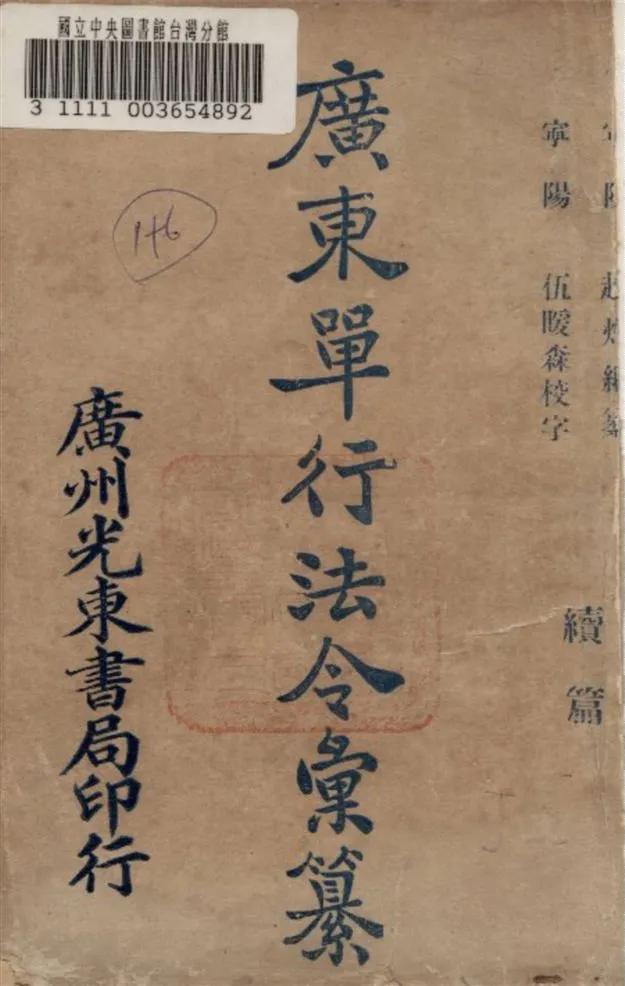 國立中央圖書館台灣分館
3 1111 003654892
146
寧陽 伍暖森校字
續篇
廣東單行法令彙纂
廣州光東書局印行